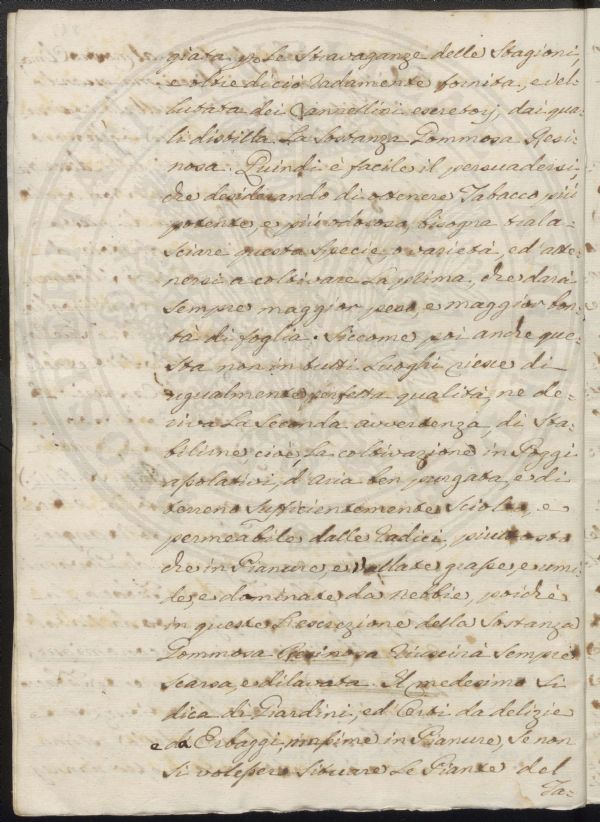 giata p. le stravaganze delle Stagioni,
e oltre di ciò radamente fornita, e vel-
lutata dei Cannellini escretorj, dai qua-
li distilla la Sostanza Gommosa Resi-
nosa. Quindi è facile il persuadersi,
che desiderando di ottenere Tabacco più
potente, e più odoroso, bisogna trala-
sciare questa Specie, o varietà, ed atte-
nersi a coltivare la prima, che darà
sempre maggior peso, e maggior bon-
tà di foglia. Siccome poi anche que-
sta non in tutti Luoghi riesce di
ugualmente perfetta qualità, ne de-
riva la Seconda avvertenza, di Sta-
bilirne cioè, la coltivazione in Poggi
apolativi, d'aria ben purgata, e di
terreno sufficientemente sciolto, e
permeabile dalle radici, piuttosto
che in Pianure, e Vallate grasse, e umi-
de, e dominate da nebbie, poichè
in queste l'escrezione della Sostanza
Gommosa Resinosa riuscirà sempre
scarsa, e dilavata. Il medesimo Si
dica di Giardini, ed Orti da delizie
e da Erbaggi, massime in Pianure, Se non
si volessero situare le Piante del
Ta-